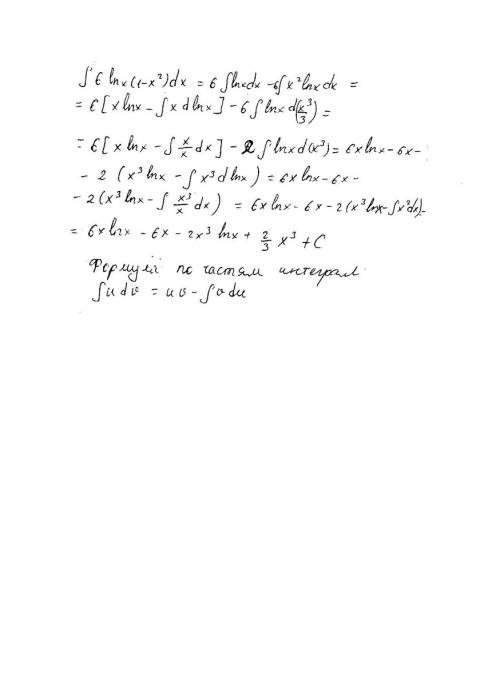 ∫6 lnx(1-x²)dx = 6∫lnxdx - 6∫x²lnxdx =
= 6[x lnx - ∫x d lnx] - 6∫lnx d(x³/3) =
= 6[x lnx - ∫x/x dx] - 2∫lnx d(x³) = 6x lnx - 6x -
- 2(x³lnx - ∫x³d lnx) = 6x lnx - 6x -
- 2(x³lnx - ∫x³/x dx) = 6x lnx - 6x - 2(x³lnx - ∫x²dx) =
= 6x lnx - 6x - 2x³ lnx + 2/3 x³ + C
по частям интеграл
∫u dv = uv - ∫v du